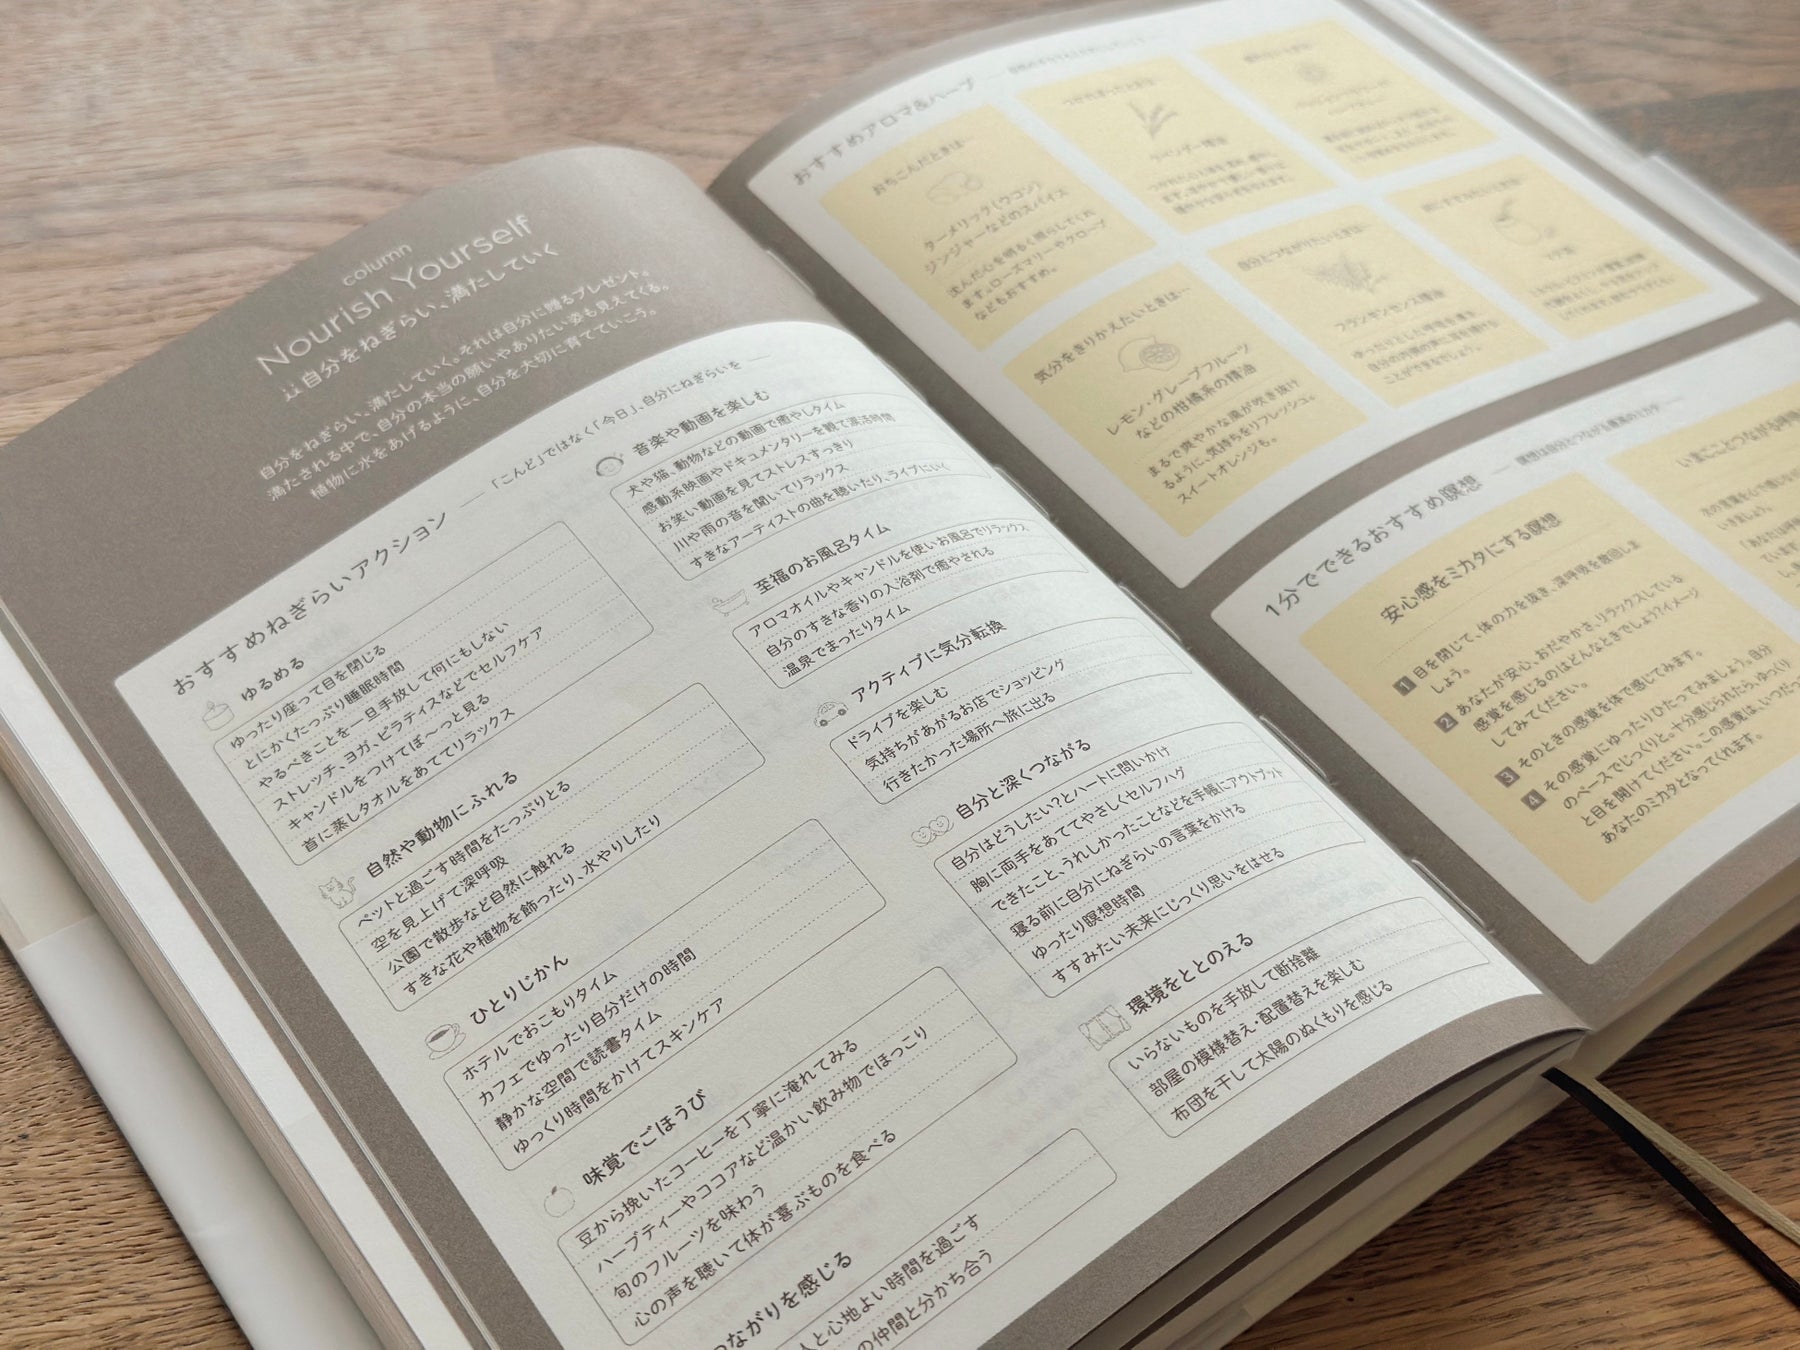 column
Nourish Yourself
自分をねぎらい、満たしていく
自分をねぎらい、満たしていく。それは自分に贈るプレゼント。
満たされる中で、自分の本当の願いやありたい姿も見えてくる。
植物に水をあげるように、自分を大切に育てていこう。
おすすめねぎらいアクション
「こんど」ではなく「今日」、自分にねぎらいを
ゆるめる
ゆったり座って目を閉じる
とにかくたっぷり睡眠時間
やるべきことを一旦手放して何にもしない
ストレッチ、ヨガ、ピラティスなどでセルフケア
キャンドルをつけてぼ〜っと見る
首に蒸しタオルをあててリラックス
自然や動物にふれる
ペットと過ごす時間をたっぷりとる
空を見上げて深呼吸
公園で散歩など自然に触れる
すきな花や植物を飾ったり、水やりしたり
ひとりじかん
ホテルでおこもりタイム
カフェでゆったり自分だけの時間
静かな空間で読書タイム
ゆっくり時間をかけてスキンケア
味覚でごほうび
豆から挽いたコーヒーを丁寧に淹れてみる
ハーブティーやココアなど温かい飲み物でほっこり
旬のフルーツを味わう
心の声を聴いて体が喜ぶものを食べる
ながりを感じる
人と心地よい時間を過ごす
の仲間と分かち合う
音楽や動画を楽しむ
犬や猫、動物などの動画で癒やしタイム
感動系映画やドキュメンタリーを観て涙活時間
お笑い動画を見てストレスすっきり
川や雨の音を聞いてリラックス
すきなアーティストの曲を聴いたり、ライブにいく
至福のお風呂タイム
アロマオイルやキャンドルを使いお風呂でリラックス、
自分のすきな香りの入浴剤で癒やされる
温泉でまったりタイム
アクティブに気分転換
ドライブを楽しむ
気持ちがあがるお店でショッピング
行きたかった場所へ旅に出る
自分と深くつながる
自分はどうしたい?とハートに問いかけ
胸に両手をあててやさしくセルフハグ
できたこと、うれしかったことなどを手帳にアウトプット
寝る前に自分にねぎらいの言葉をかける
ゆったり瞑想時間
すすみたい未来にじっくり思いをはせる
環境をととのえる
いらないものを手放して断捨離
部屋の模様替え・配置替えを楽しむ
布団を干して太陽のぬくもりを感じる
おすすめアロマ&ハーブ
おちこんだときは…
ターメリック(ウコン)
ジンジャーなどのスパイス
沈んだ心を明るく照らしてくれ
ます。ローズマリーやクローブ
などもおすすめ。
つかれをとるときは…
ラベンダー精油
気分をきりかえたいときは…
レモン・グレープフルーツ
などの柑橘系の精油
まるで爽やかな風が吹き抜け
るように、気持ちをリフレッシュ。
スイートオレンジも。
自分とつながりたいときは…
フランキンセンス精油
ゆったりとした呼吸を促し
自分の内側の声に耳を傾ける
ことができるでしょう。
1分でできるおすすめ瞑想
安心感をミカタにする瞑想
1 目を閉じて、体の力を抜き、深呼吸を数回しま
しょう。
2 あなたが安心、おだやかさ、リラックスしている
感覚を感じるのはどんなときでしょう?イメージ
してみてください。
3 そのときの感覚を体で感じてみます。
4 その感覚にゆったりひたってみましょう。自分
のペースでじっくりと。十分感じられたら、ゆっくり
と目を開けてください。この感覚は、いつだっ
あなたのミカタとなってくれます。
いまここにつながる呼吸